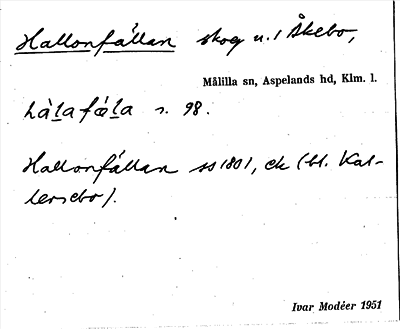 Hallonfällan skog u. 1 Åkebo,
Målilla sn, Aspelands hd, Klm. l.
hàl̲afæ̀l̲a s. 98.
Hallonfällan ss 1801, ek (bl. Kal-
lersebo).
Ivar Modéer 1951